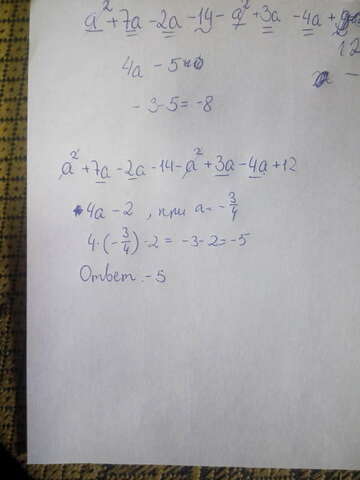 a² + 7a - 2a - 14 - a² + 3a - 4a +
12
4a - 5
a -
- 3 - 5 = - 8
a² + 7a - 2a - 14 - a² + 3a - 4a + 12
4a - 2, при a = - 3/4
4 · (- 3/4) - 2 = - 3 - 2 = - 5
Ответ: - 5